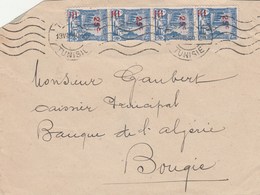 TUNISIE
TUNISIE
Monsieur Gaubert
Caissier Principal
Banque de l'Algérie
Bougie